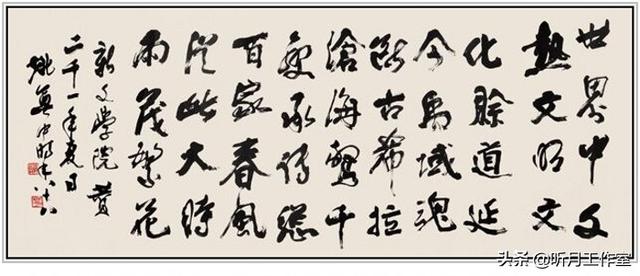 世界中文
熱文明文
化賒道延
今禹域魂
斷古希拉
滄海驚千
變承傳總
百家春風
從此大時
雨茂繁花
新文學院贊
二千一年夏日
姚奠中時年八十八
头条@昕月工作室